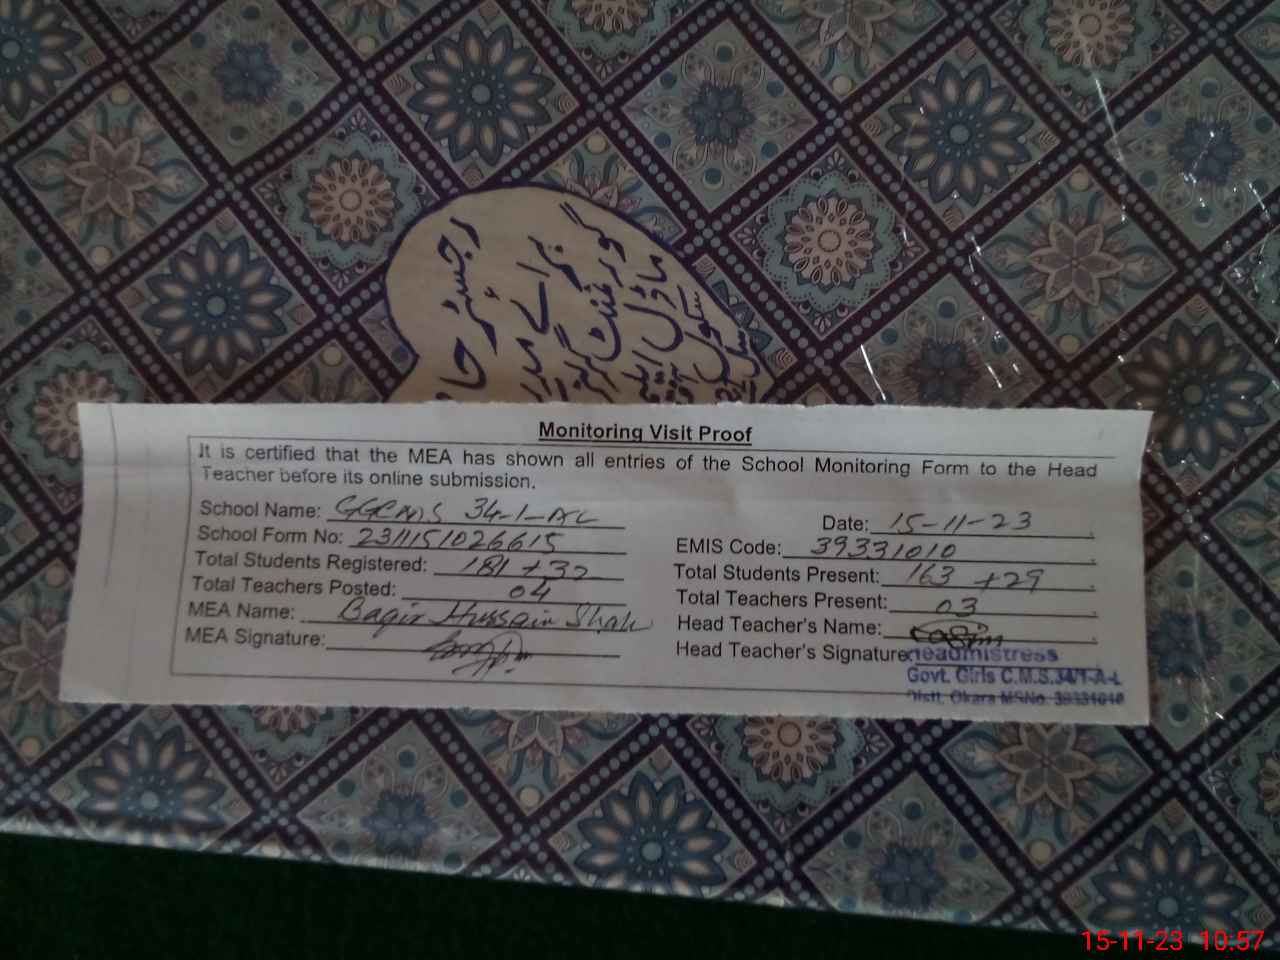 رجسٹر حا
گورنمنٹ
ماڈل
سکول
Monitoring Visit Proof
It is certified that the MEA has shown all entries of the School Monitoring Form to the Head
Teacher before its online submission.
School Name: GGCMS 34-1-AL Date: 15-11-23
School Form No: 2311151026615 EMIS Code: 39331010
Total Students Registered: 181 + 32 Total Students Present: 163 + 29
Total Teachers Posted: 04 Total Teachers Present: 03
MEA Name: Baqir Hussain Shah Head Teacher's Name:
MEA Signature: Head Teacher's Signature
Headmistress
Govt. Girls C.M.S.34/1-A-L
Distt. Okara MSNo. 39331010
15-11-23 10:57